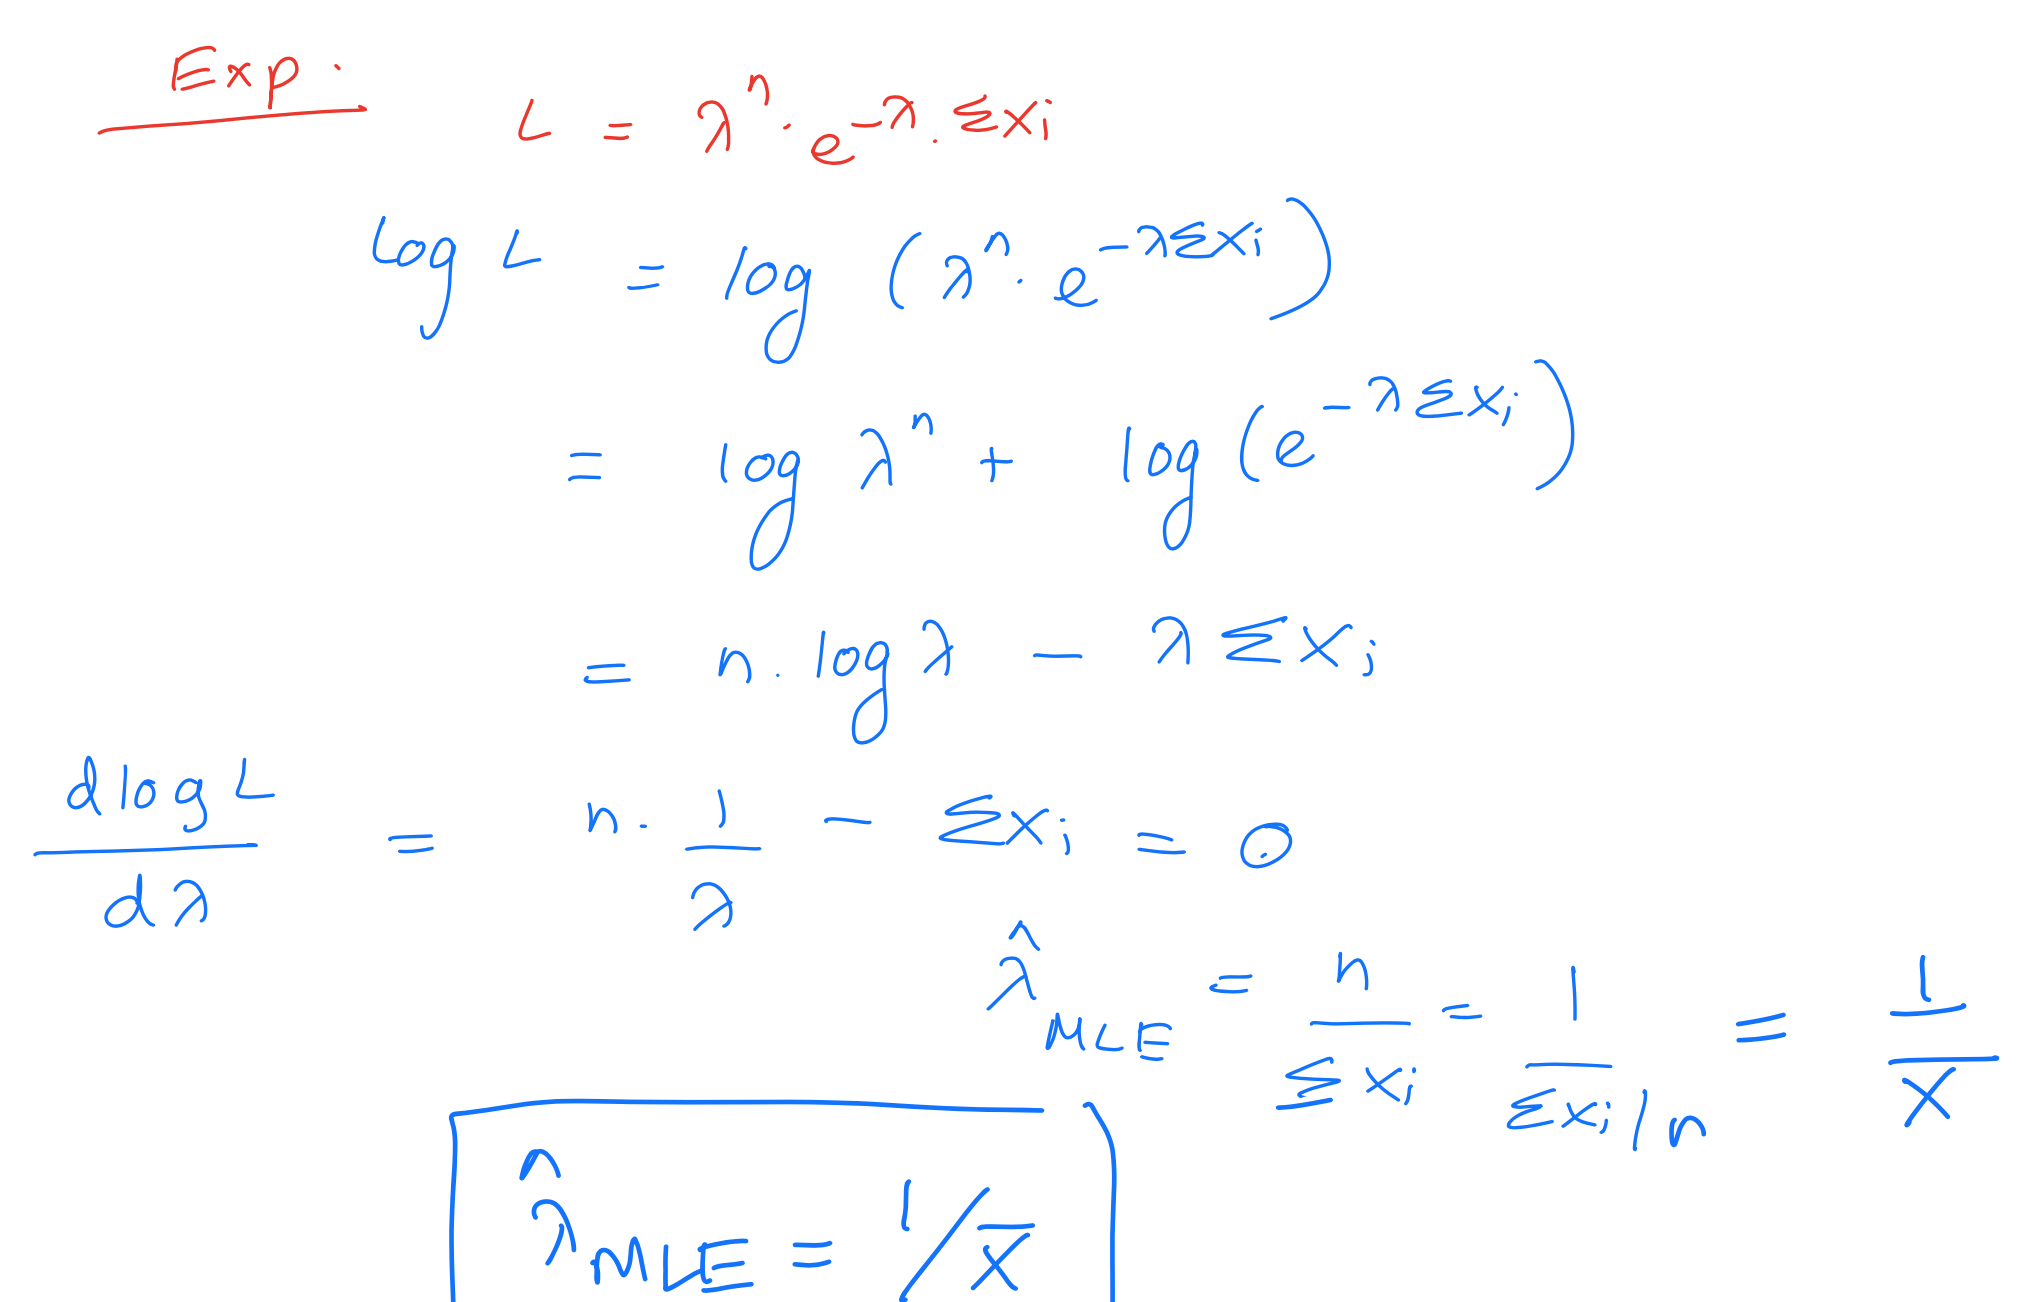 Exp.
L = λⁿ · e^(-λ. Σxi)
log L = log (λⁿ · e^(-λΣxi))
= log λⁿ + log (e^(-λΣxi))
= n. log λ − λ Σxi
d log L / dλ = n. 1/λ − Σxi = 0
λ̂_MLE = n/Σxi = 1/(Σxi/n) = 1/x̄
λ̂_MLE = 1/x̄